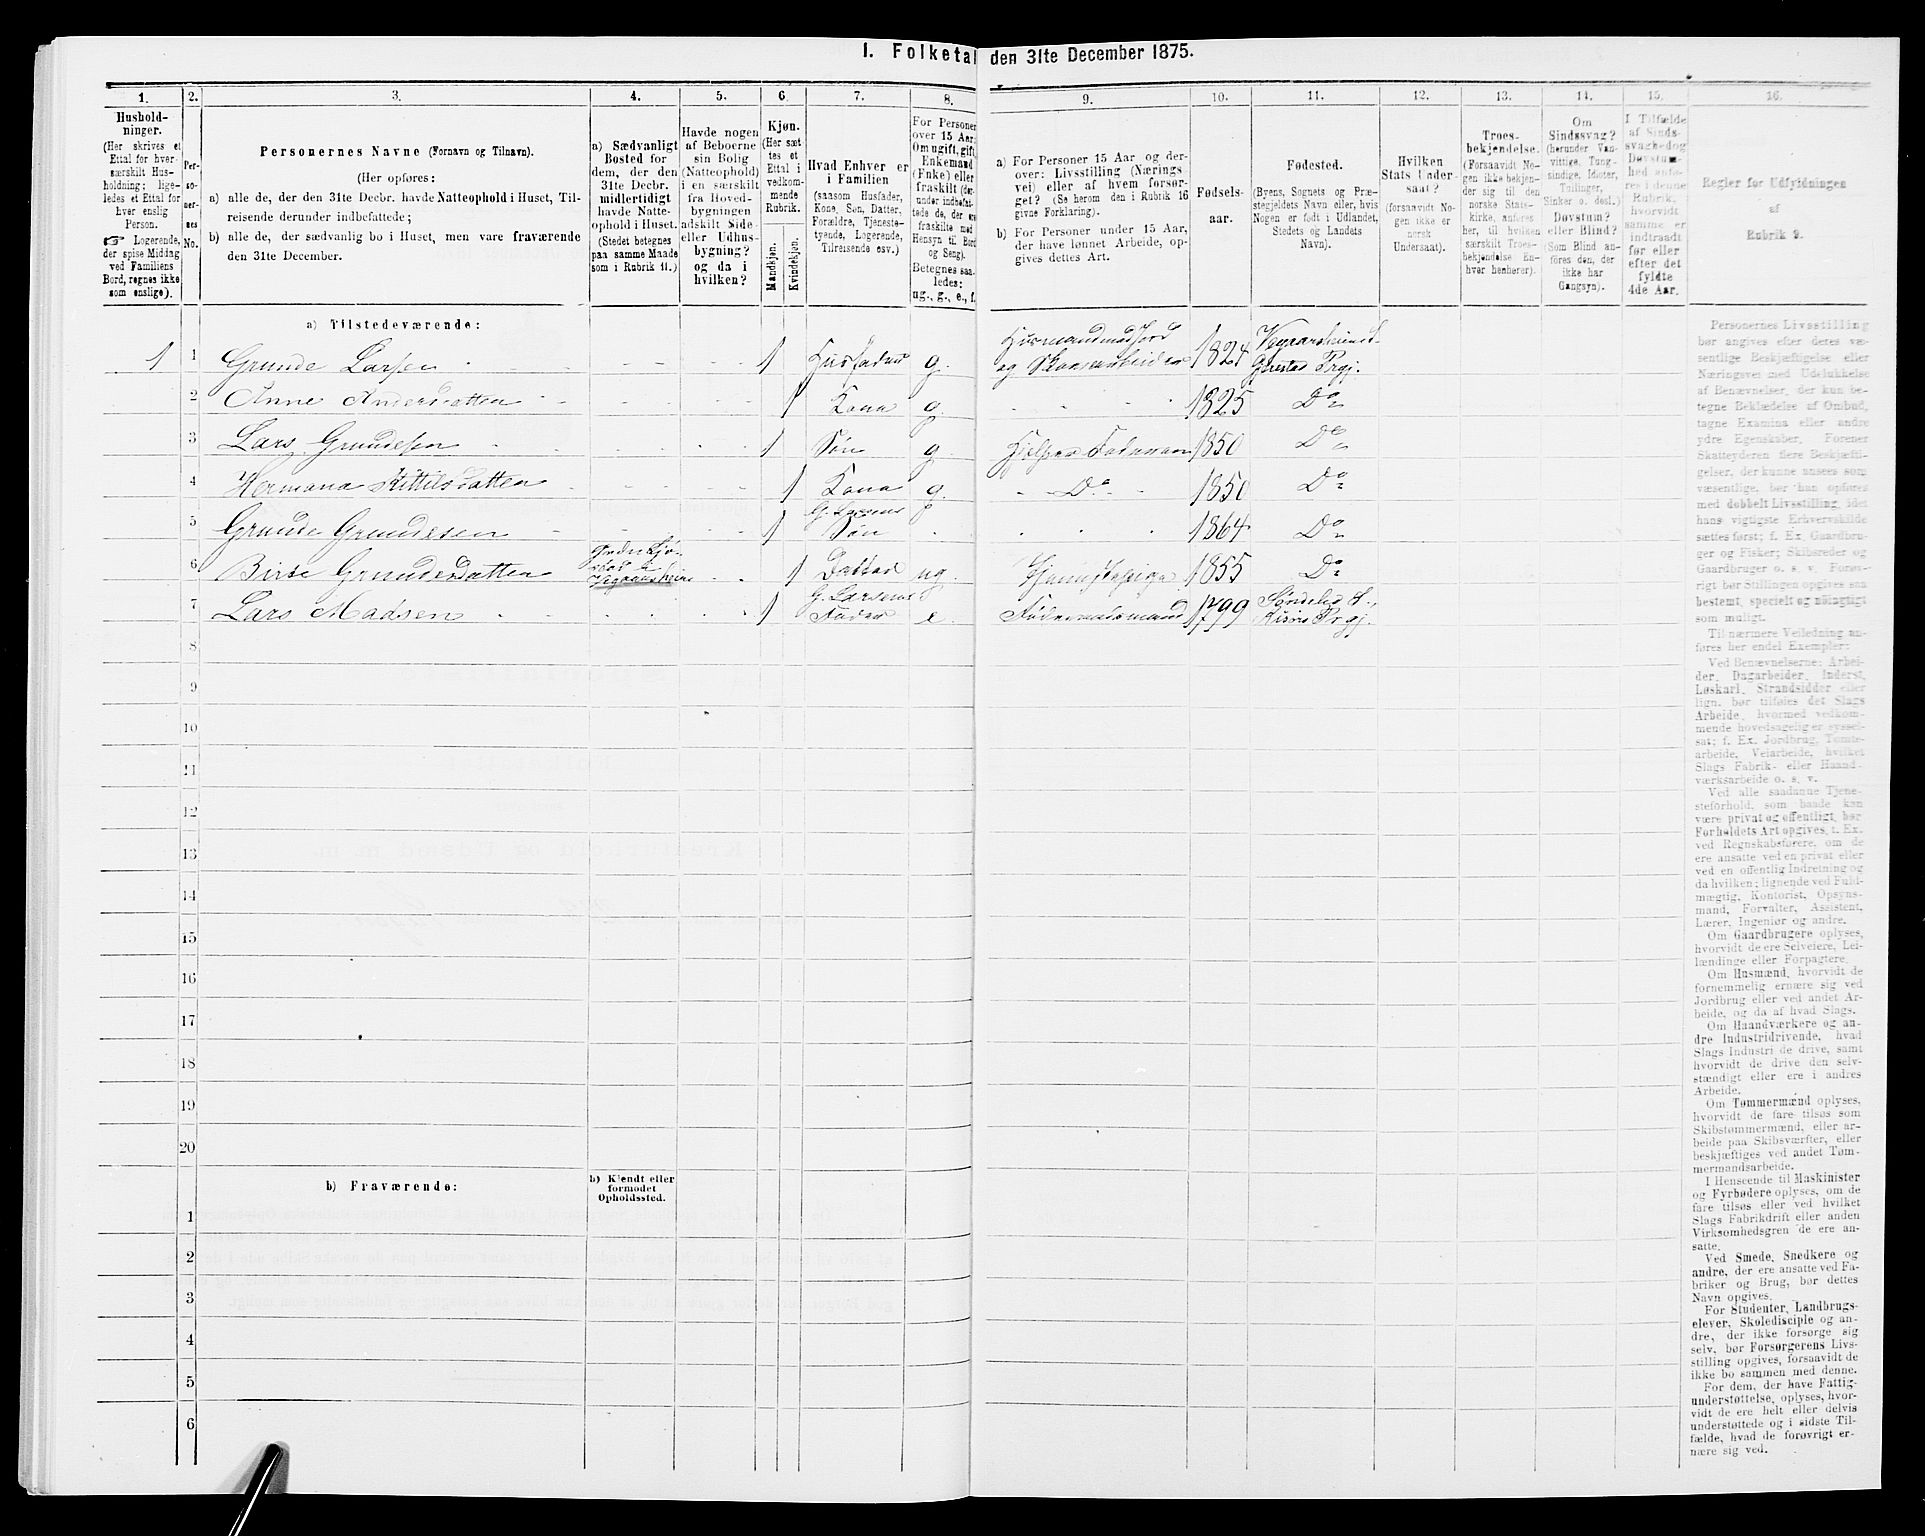 I. Folketal den 31te December 1875.
1.
Hushold-
ninger.
(Her skrives et
Ettal for hver
særskilt Hus-
holdning; lige-
ledes et Ettal for
hver enslig
Person.
Logerende,
der spise Middag
ved Familiens
Bord, regnes ikke
som enslige).
2.
Per-
so-
ner-
nes
No.
3.
Personernes Navne (Fornavn og Tilnavn).
(Her opføres:
a) alle de, der den 31te Decbr. havde Natteophold i Huset, Til-
reisende derunder indbefattede;
b) alle de, der sædvanlig bo i Huset, men vare fraværende
den 31te December.
4.
a) Sædvanligt
Bosted for
dem, der den
31te Decbr.
midlertidigt
havde Natte-
ophold i Huset.
(Stedet betegnes
paa samme Maade
som i Rubrik 11.)
5.
Havde nogen
af Beboerne
sin Bolig
(Natteophold)
i en særskilt
fra Hoved-
bygningen
adskilt Side-
eller Udhus-
bygning?
og da i
hvilken?
6.
Kjøn.
(Her sæt-
tes et
Ettal i
vedkom-
mende
Rubrik.
Mandkjøn.
Kvindekjøn.
7.
Hvad Enhver er
i Familien
(saasom Husfader,
Kone, Søn, Datter,
Forældre, Tjeneste-
tyende, Logerende,
Tilreisende osv.)
8.
For Personer
over 15 Aar:
Om ugift, gift,
Enkemand
(Enke) eller
fraskilt (der-
under indbefat-
tede de, der ere
fraskilte med
Hensyn til Bord
og Seng).
Betegnes saa-
ledes:
ug., g., e., f.
9.
a) For Personer 15 Aar og der-
over: Livsstilling (Nærings-
vei) eller af hvem forsør-
get? (Se herom den i Rubrik 16
givne Forklaring).
b) For Personer under 15 Aar,
der have lønnet Arbeide, op-
gives dettes Art.
10.
Fødsels-
aar.
11.
Fødested.
(Byens, Sognets og Præ-
stegjeldets Navn eller, hvis
Nogen er født i Udlandet,
Stedets og Landets
Navn).
12.
Hvilken
Stats Under-
saat?
(forsaavidt No-
gen ikke er
norsk
Undersaat).
13.
Troes-
bekjendelse.
(Forsaavidt No-
gen ikke bekjen-
der sig til den
norske Stats-
kirke, anføres
her, til hvilken
særskilt Troes-
bekjendelse En-
hver henhører).
14.
Om
Sindssvag?
(herunder Van-
vittige, Tung-
sindige, Idioter,
Tullinger,
Sinker o. desl.)
Døvstum?
eller Blind?
(Som Blind an-
føres den, der
ikke har
Gangsyn).
15.
I Tilfælde
af Sinds-
svaghed og
Døvstum-
hed anfø-
res i denne
Rubrik,
hvorvidt
samme er
indtraadt
før eller
efter det
fyldte
4de Aar.
16.
Regler for Udfyldningen
af
Rubrik 9.
a) Tilstedeværende:
1 1 Grunde Larsen 1 Husfader g. Husmand med Jord og Skovarbeider 1824 Vegaarsheiens S. Gjerestad Prgj.
2 Anne Andersdatter 1 Kona g. 1825 Do
3 Lars Grundesen 1 Søn g. Hjelper Faderen 1850 Do
4 Hermana Kittilsdatter 1 Kona g. Do 1850 Do
5 Grunde Grundesen 1 G. Larsens Søn 1864 Do
6 Birte Grundesdatter Vegaarsheien 1 Datter ug. Tjenestepige 1855 Do
7 Lars Madsen 1 G. Larsens Fader e. Føderaadsmand 1799 Søndeled S., Risørs Prgj.
8
9
10
11
12
13
14
15
16
17
18
19
20
b) Fraværende:
b) Kjendt eller
formodet
Opholdssted.
1
2
3
4
5
6
Personernes Livsstilling
bør angives efter deres væ-
sentlige Beskjæftigelse eller
Næringsvei med Udelukkelse
af Benævnelser, der kun be-
tegne Beklædelse af Ombud,
tagne Examina eller andre
ydre Egenskaber. Forener
Skatteyderen flere Beskjæfti-
gelser, der kunne ansees som
væsentlige, bør han opføres
med dobbelt Livsstilling, idet
hans vigtigste Erhvervskilde
sættes først; f. Ex. Gaardbru-
ger og Fisker; Skibsreder og
Gaardbruger o. s. v. Forøv-
rigt bør Stillingen opgives saa
bestemt, specielt og nøiagtigt
som muligt.
Til nærmere Veiledning an-
føres her endel Exempler:
Ved Benævnelserne: Arbei-
der, Dagarbeider, Inderst,
Løskarl, Strandsidder eller
lign. bør tilføies det Slags
Arbeide, hvormed vedkom-
mende hovedsagelig er syssel-
sat; f. Ex. Jordbrug, Tomte-
arbeide, Veiarbeide, hvilket
Slags Fabrik- eller Haand-
værksarbeide o. s. v.
Ved alle saadanne Tjene-
steforhold, som baade kan
være privat og offentligt, bør
Forholdets Art opgives, t. Ex.
ved Regnskabsførere, om de
ere ansatte ved en privat eller
ved en offentlig Indretning og
da hvilken; lignende ved Fuld-
mægtig, Kontorist, Opsyns-
mand, Forvalter, Assistent,
Lærer, Ingeniør og andre.
Om Gaardbrugere oplyses,
hvorvidt de ere Selveiere, Lei-
lændinge eller Forpagtere.
Om Husmænd, hvorvidt de
fornemmelig ernære sig ved
Jordbrug eller ved andet Ar-
beide, og da af hvad Slags.
Om Haandværkere og an-
dre Industridrivende, hvad
Slags Industri de drive, samt
hvorvidt de drive den selv-
stændigt eller ere i andres
Arbeide.
Om Tømmermænd oplyses,
hvorvidt de fare tilsøs som
Skibstømmermænd, eller ar-
beide paa Skibsværfter, eller
beskjæftiges ved andet Tøm-
mermandsarbeide.
I Henseende til Maskinister
og Fyrbødere oplyses, om de
fare tilsøs eller ved hvilket
Slags Fabrikdrift eller anden
Virksomhedsgren de ere an-
satte.
Ved Smede, Snedkere og
andre, der ere ansatte ved Fa-
briker og Brug, bør dettes
Navn opgives.
For Studenter, Landbrugs-
elever, Skoledisciple og an-
dre, der ikke forsørge sig
selv, bør Forsørgerens Livs-
stilling opgives, forsaavidt de
ikke bo sammen med denne.
For dem, der have Fattig-
understøttelse, oplyses, hvor-
vidt de ere helt eller delvis
understøttede og i sidste Til-
fælde, hvad de forøvrigt er-
nære sig ved.